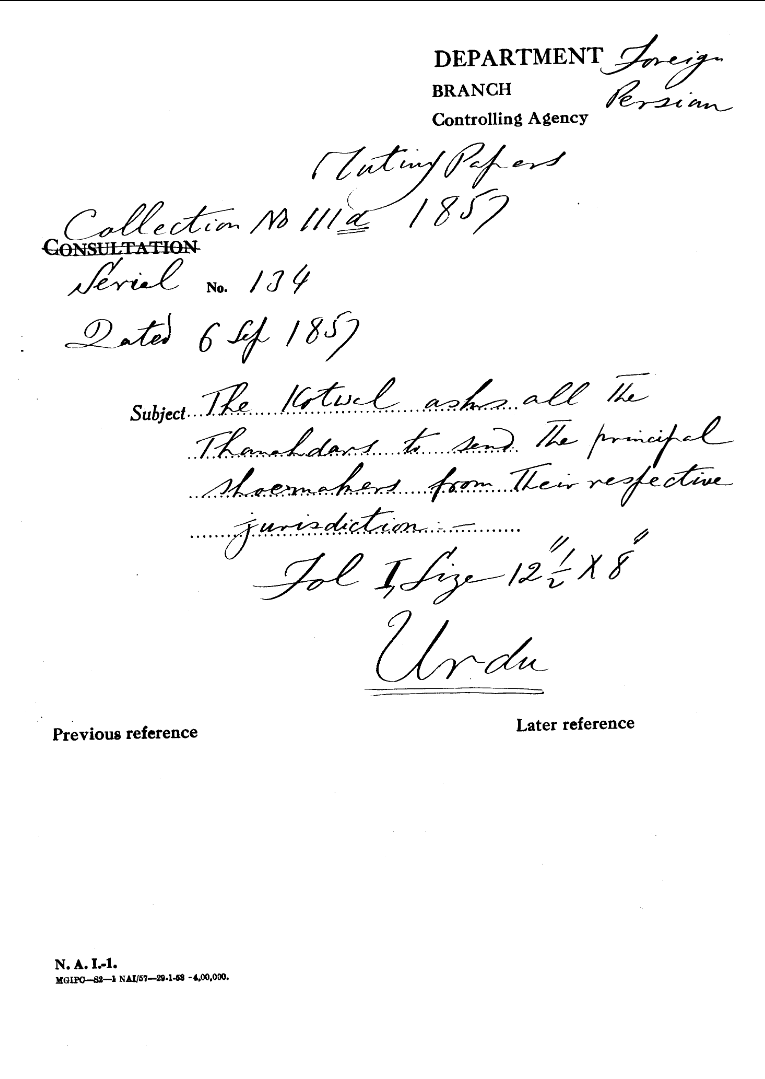 DEPARTMENT Foreign
BRANCH Persian
Controlling Agency
Mutiny Papers
Collection No 111a 1857
CONSULTATION
Serial No. 134
Dated 6 Sep 1857
Subject The Kotwal asks all the
Thanahdars to send the principal
shoemakers from their respective
jurisdiction.—
Fol I, Size 12"½ X 8"
Urdu
Previous reference Later reference
N. A. I.-1.
MGIPC—S2—1 NAI/57—29-1-58 -4,00,000.